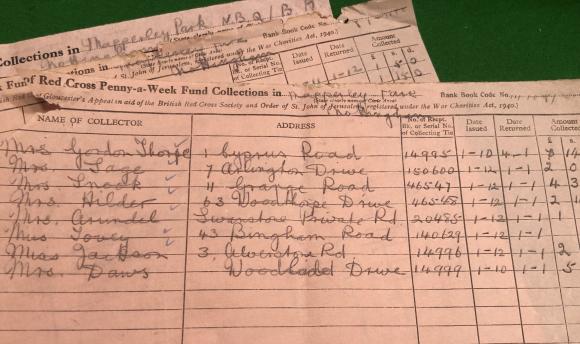 Collections in Mapperley Park N.B.Q/B
Bank Book Code No.
Amount Collected
Date Issued
Date Returned
of St. John of Jerusalem, registered under the War Charities Act, 1940.)
of Collecting Tin
£ s. d.
Fund of Red Cross Penny-a-Week Fund Collections in Mapperley Park Bank Book Code No.
of Gloucester's Appeal in aid of the British Red Cross Society and Order of St. John of Jerusalem, registered under the War Charities Act, 1940.)
NAME OF COLLECTOR ADDRESS No. of Recpt. Bk. or Serial No. of Collecting Tin Date Issued Date Returned Amount Collected
£ s.
Mrs Gordon Thorpe 1 Cyprus Road 14995 1-10 4-1 8 14
Mrs. Sage 7 Arlington Drive 150600 1-12 1-1 2 0
Mrs Snook 11 Grange Road 46547 1-12 1-1 4 3
Mrs. Hilder 63 Woodthorpe Drive 46548 1-12 1-1 2
Mrs. Arundel Private Rd. 20485 1-12 1-1 1
Miss Tovey 43 Bingham Road 140629 1-1 1-1
Miss Jackson 3, Alverstone Rd. 14996 1-12 1-1 2
Mrs. Daws Drive 14999 1-10 1-1 5